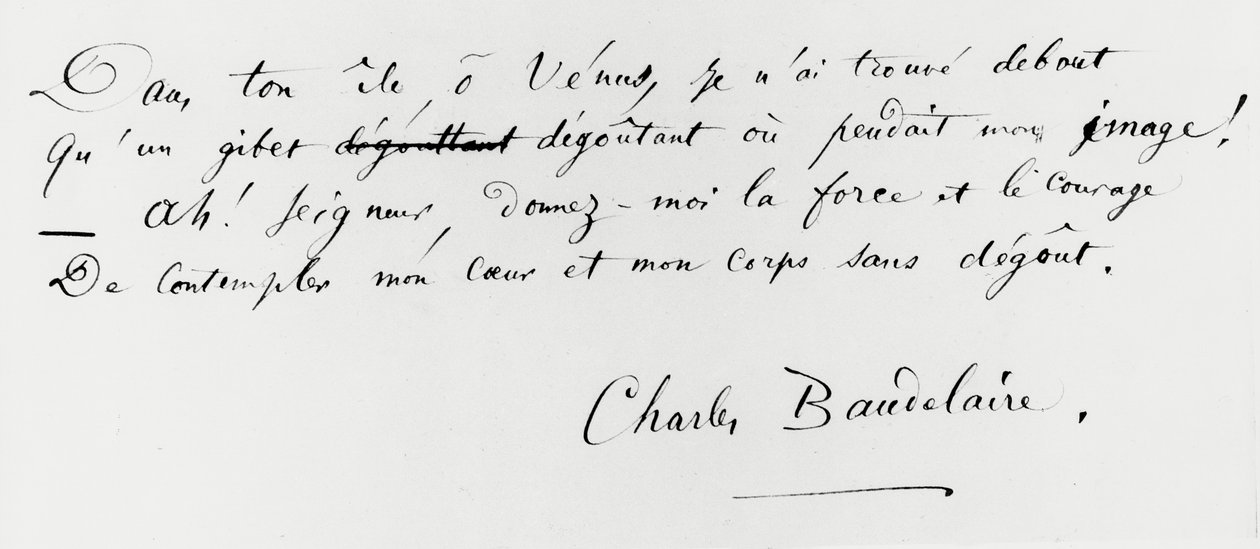 Dans ton île, ô Vénus, je n'ai trouvé debout
Qu'un gibet dégouttant dégoûtant où pendait mon image!
— Ah! Seigneur, donnez-moi la force et le courage
De contempler mon cœur et mon corps sans dégoût.
Charles Baudelaire.